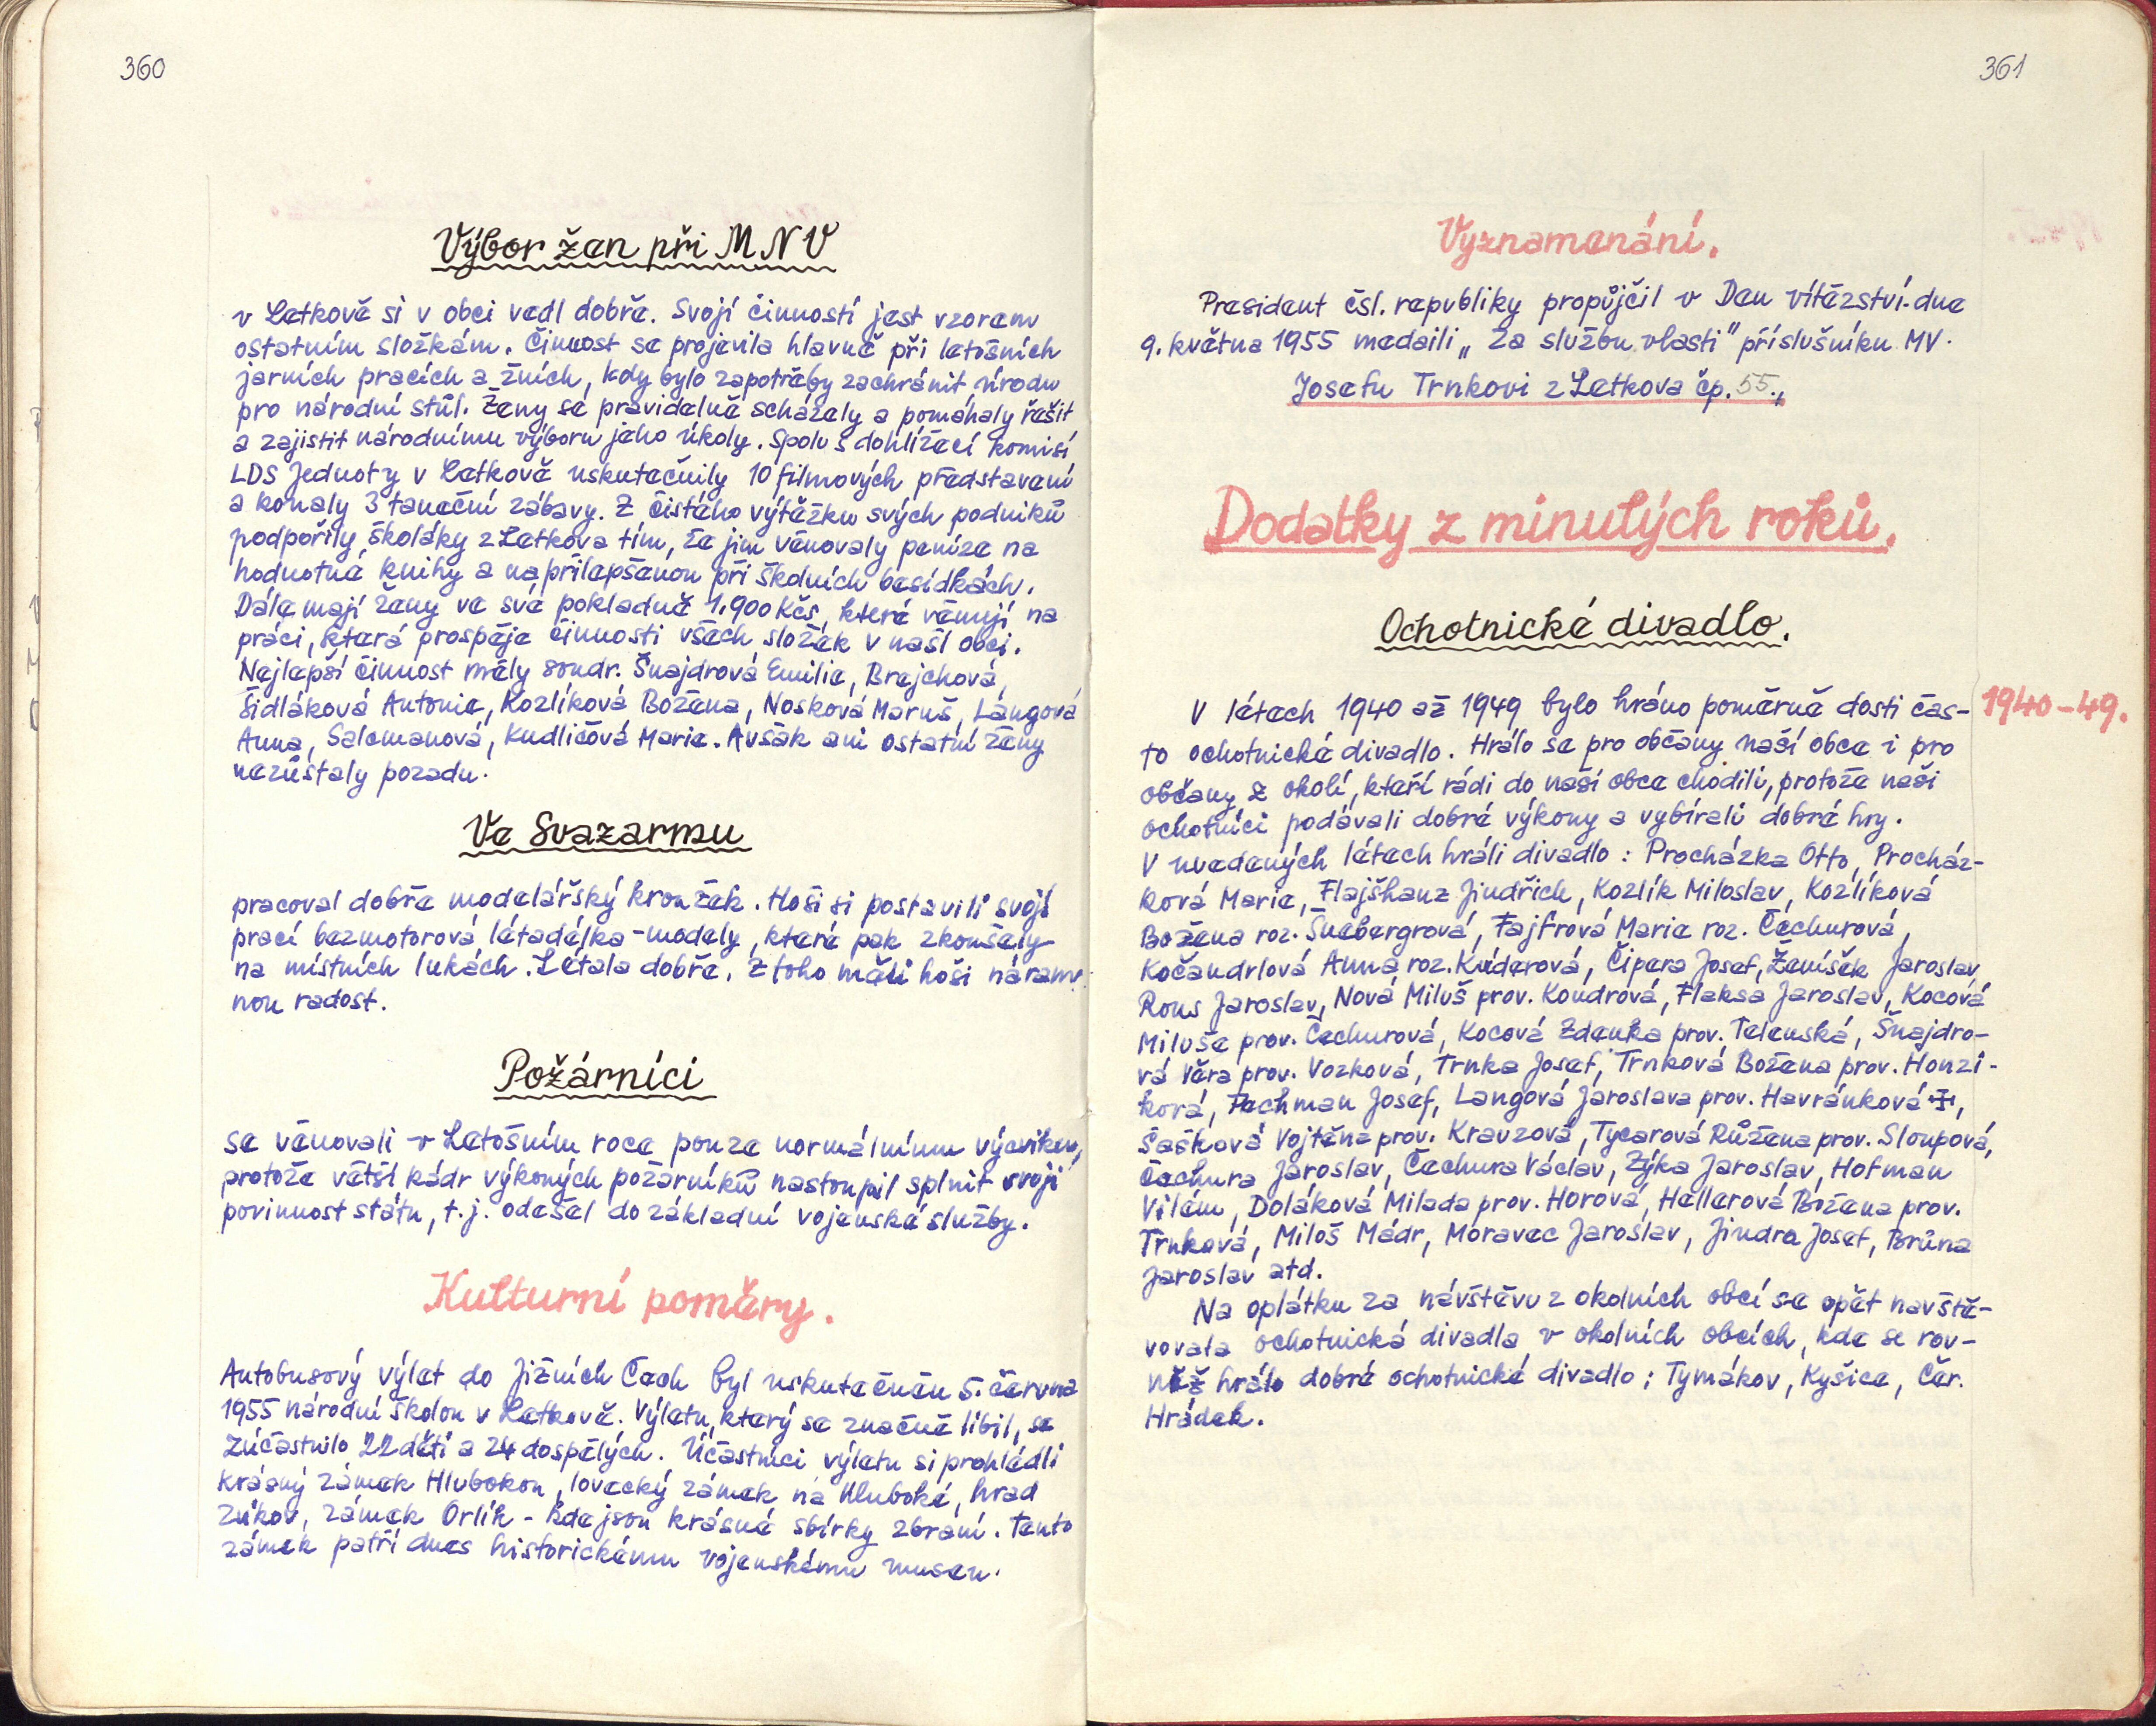 360
Výbor žen při MNV
v Letkově si v obci vedl dobře. Svojí činností jest vzorem
ostatním složkám. Činnost se projevila hlavně při letošních
jarních pracích a žních, kdy bylo zapotřeby zachránit úrodu
pro národní stůl. Ženy se pravidelně scházely a pomáhaly řešit
a zajistit národnímu výboru jeho úkoly. Spolu s dohlížecí komisí
LDS Jednoty v Letkově uskutečnily 10 filmových představení
a konaly 3 taneční zábavy. Z čistého výtěžku svých podniků
podpořily školáky z Letkova tím, že jim věnovaly peníze na
hodnotné knihy a na přilepšenou při školních besídkách.
Dále mají ženy ve své pokladně 1.900 Kčs, které věnují na
práci, která prospěje činnosti všech složek v naší obci.
Nejlepší činnost měly soudr. Šnajdrová Emilie, Brejchová,
Šidláková Antonie, Kozlíková Božena, Nosková Maruš, Langová
Anna, Salomanová, Kudličová Marie. Avšak ani ostatní ženy
nezůstaly pozadu.
Ve Svazarmu
pracoval dobře modelářský kroužek. Hoši si postavili svojí
prací bezmotorová létadélka - modely, které pak zkoušely
na místních lukách. Létala dobře. Z toho měli hoši náram-
nou radost.
Požárníci
se věnovali v Letošním roce pouze normálnímu výcviku,
protože větší kádr výkoných požárníků nastoupil splnit svoji
povinnost státu, t.j. odešel do základní vojenské služby.
Kulturní poměry.
Autobusový výlet do Jižních Čech byl uskutečněn 5. června
1955 národní školou v Letkově. Výletu, který se značně líbil, se
zúčastnilo 22 dětí a 24 dospělých. Účastníci výletu si prohlédli
krásný zámek Hlubokou, lovecký zámek na Hluboké, hrad
Zvíkov, zámek Orlík - kde jsou krásné sbírky zbraní. Tento
zámek patří dnes historickému vojenskému museu.
361
Vyznamenání.
President čsl. republiky propůjčil v Den vítězství dne
9. května 1955 medaili „Za službu vlasti" příslušníku MV.
Josefu Trnkovi z Letkova čp. 55.,
Dodatky z minulých roků.
Ochotnické divadlo.
V létech 1940 až 1949 bylo hráno poměrně dosti čas-
1940-49.
to ochotnické divadlo. Hrálo se pro občany naší obce i pro
občany z okolí, kteří rádi do naší obce chodili, protože naši
ochotníci podávali dobré výkony a vybírali dobré hry.
V uvedených létech hráli divadlo: Procházka Otto, Procház-
ková Marie, Flajšhanz Jindřich, Kozlík Miloslav, Kozlíková
Božena roz. Šnebergrová, Fajfrová Marie roz. Čechurová,
Kočandrlová Anna roz. Kuderová, Čipera Josef, Ženíšek Jaroslav
Rous Jaroslav, Nová Miluš prov. Koudrová, Flaksa Jaroslav, Kocová
Miluše prov. Čechurová, Kocová Zdenka prov. Telenská, Šnajdro-
vá Věra prov. Vozková, Trnka Josef, Trnková Božena prov. Honzí-
ková, Pachman Josef, Langová Jaroslava prov. Havránková,
Šašková Vojtěna prov. Krauzová, Tycarová Růžena prov. Sloupová,
Čechura Jaroslav, Čechura Václav, Zýka Jaroslav, Hofman
Vilém, Doláková Milada prov. Horová, Hellerová Božena prov.
Trnková, Miloš Mádr, Moravec Jaroslav, Jindra Josef, Brůna
Jaroslav atd.
Na oplátku za návštěvu z okolních obcí se opět navště-
vovala ochotnická divadla v okolních obcích, kde se rov-
něž hrálo dobré ochotnické divadlo: Tymákov, Kyšice, Čer.
Hrádek.